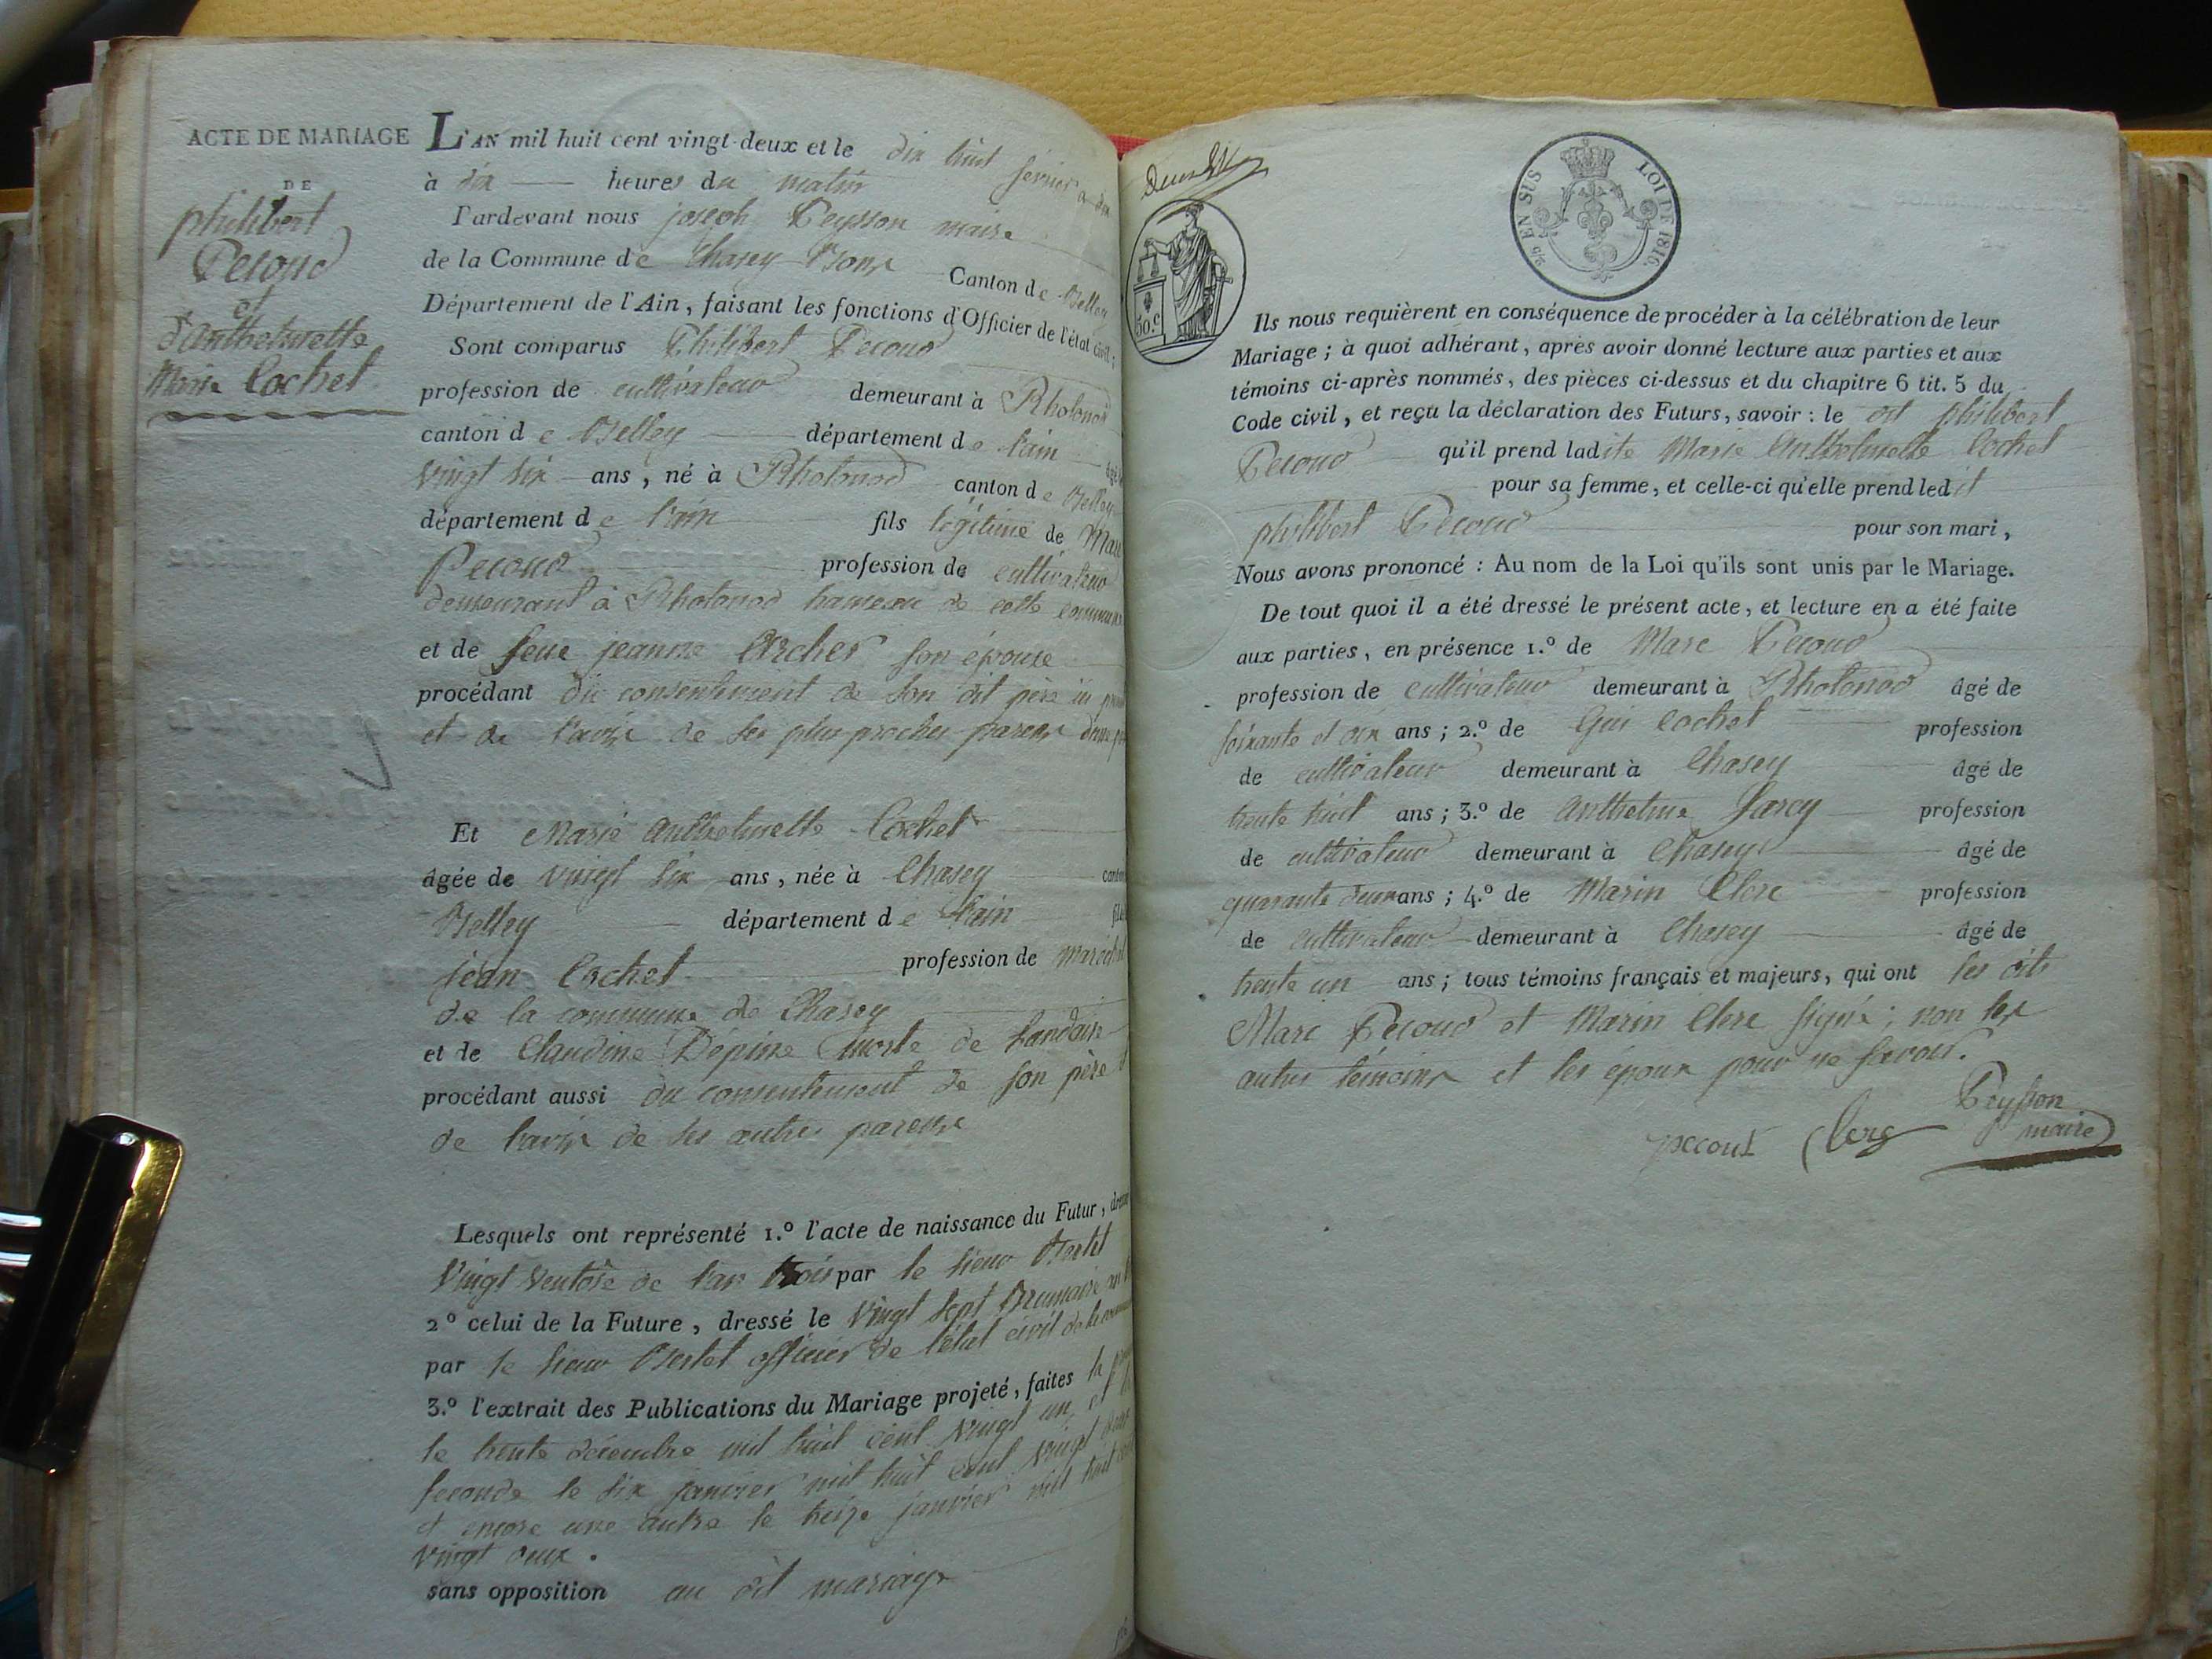 ACTE DE MARIAGE
DE
philibert
Pecoud
et
d'Anthelmette
Marie Cochet
L'AN mil huit cent vingt-deux et le dix huit février
à dix heures du matin
Pardevant nous joseph Peysson maire
de la Commune de Chasey Bons Canton de Belley
Département de l'Ain, faisant les fonctions d'Officier de l'état civil;
Sont comparus Philibert Pecoud
profession de cultivateur demeurant à Rhotonod
canton de Belley département de l'ain âgé
vingt six ans, né à Rhotonod canton de Belley
département de l'ain fils légitime de Marc
Pecoud profession de cultivateur
demeurant à Rhotonod hameau de cette commune
et de feue jeanne Archer son épouse
procédant du consentement de son dit père ici
et de l'avis de ses plus proches parens
Et Marie Anthelmette Cochet
âgée de vingt six ans, née à Chasey
Belley département de l'ain
jean Cochet profession de maréchal
de la commune de Chasey
et de Claudine Dépine morte de
procédant aussi du consentement de son père
de l'avis de ses autres parens
Lesquels ont représenté 1.º l'acte de naissance du Futur,
Vingt Ventôse de l'an trois par le sieur Bertet
2º celui de la Future, dressé le Vingt sept Brumaire
par le sieur Bertet officier de l'état civil de la
3.º l'extrait des Publications du Mariage projeté, faites la
le trente décembre mil huit cent vingt un, et
seconde le six janvier mil huit cent vingt deux
et encore une autre le treize janvier mil huit
vingt deux.
sans opposition au dit mariage
2/10 EN SUS LOI DE 1816.
50.c
Ils nous requièrent en conséquence de procéder à la célébration de leur
Mariage; à quoi adhérant, après avoir donné lecture aux parties et aux
témoins ci-après nommés, des pièces ci-dessus et du chapitre 6 tit. 5 du
Code civil, et reçu la déclaration des Futurs, savoir: le dit philibert
Pecoud qu'il prend ladite Marie Anthelmette Cochet
pour sa femme, et celle-ci qu'elle prend ledit
philibert Pecoud pour son mari,
Nous avons prononcé: Au nom de la Loi qu'ils sont unis par le Mariage.
De tout quoi il a été dressé le présent acte, et lecture en a été faite
aux parties, en présence 1.º de Marc Pecoud
profession de cultivateur demeurant à Rhotonod âgé de
soixante et dix ans; 2.º de Gui Cochet profession
de cultivateur demeurant à Chasey âgé de
trente huit ans; 3.º de Anthelme Sarcy profession
de cultivateur demeurant à Chasey âgé de
quarante deux ans; 4.º de Marin Clerc profession
de cultivateur demeurant à Chasey âgé de
trente un ans; tous témoins français et majeurs, qui ont les dits
Marc Pecoud et Marin Clerc signé; non les
autres témoins et les époux pour ne savoir.
Peysson
pecout Clerg maire